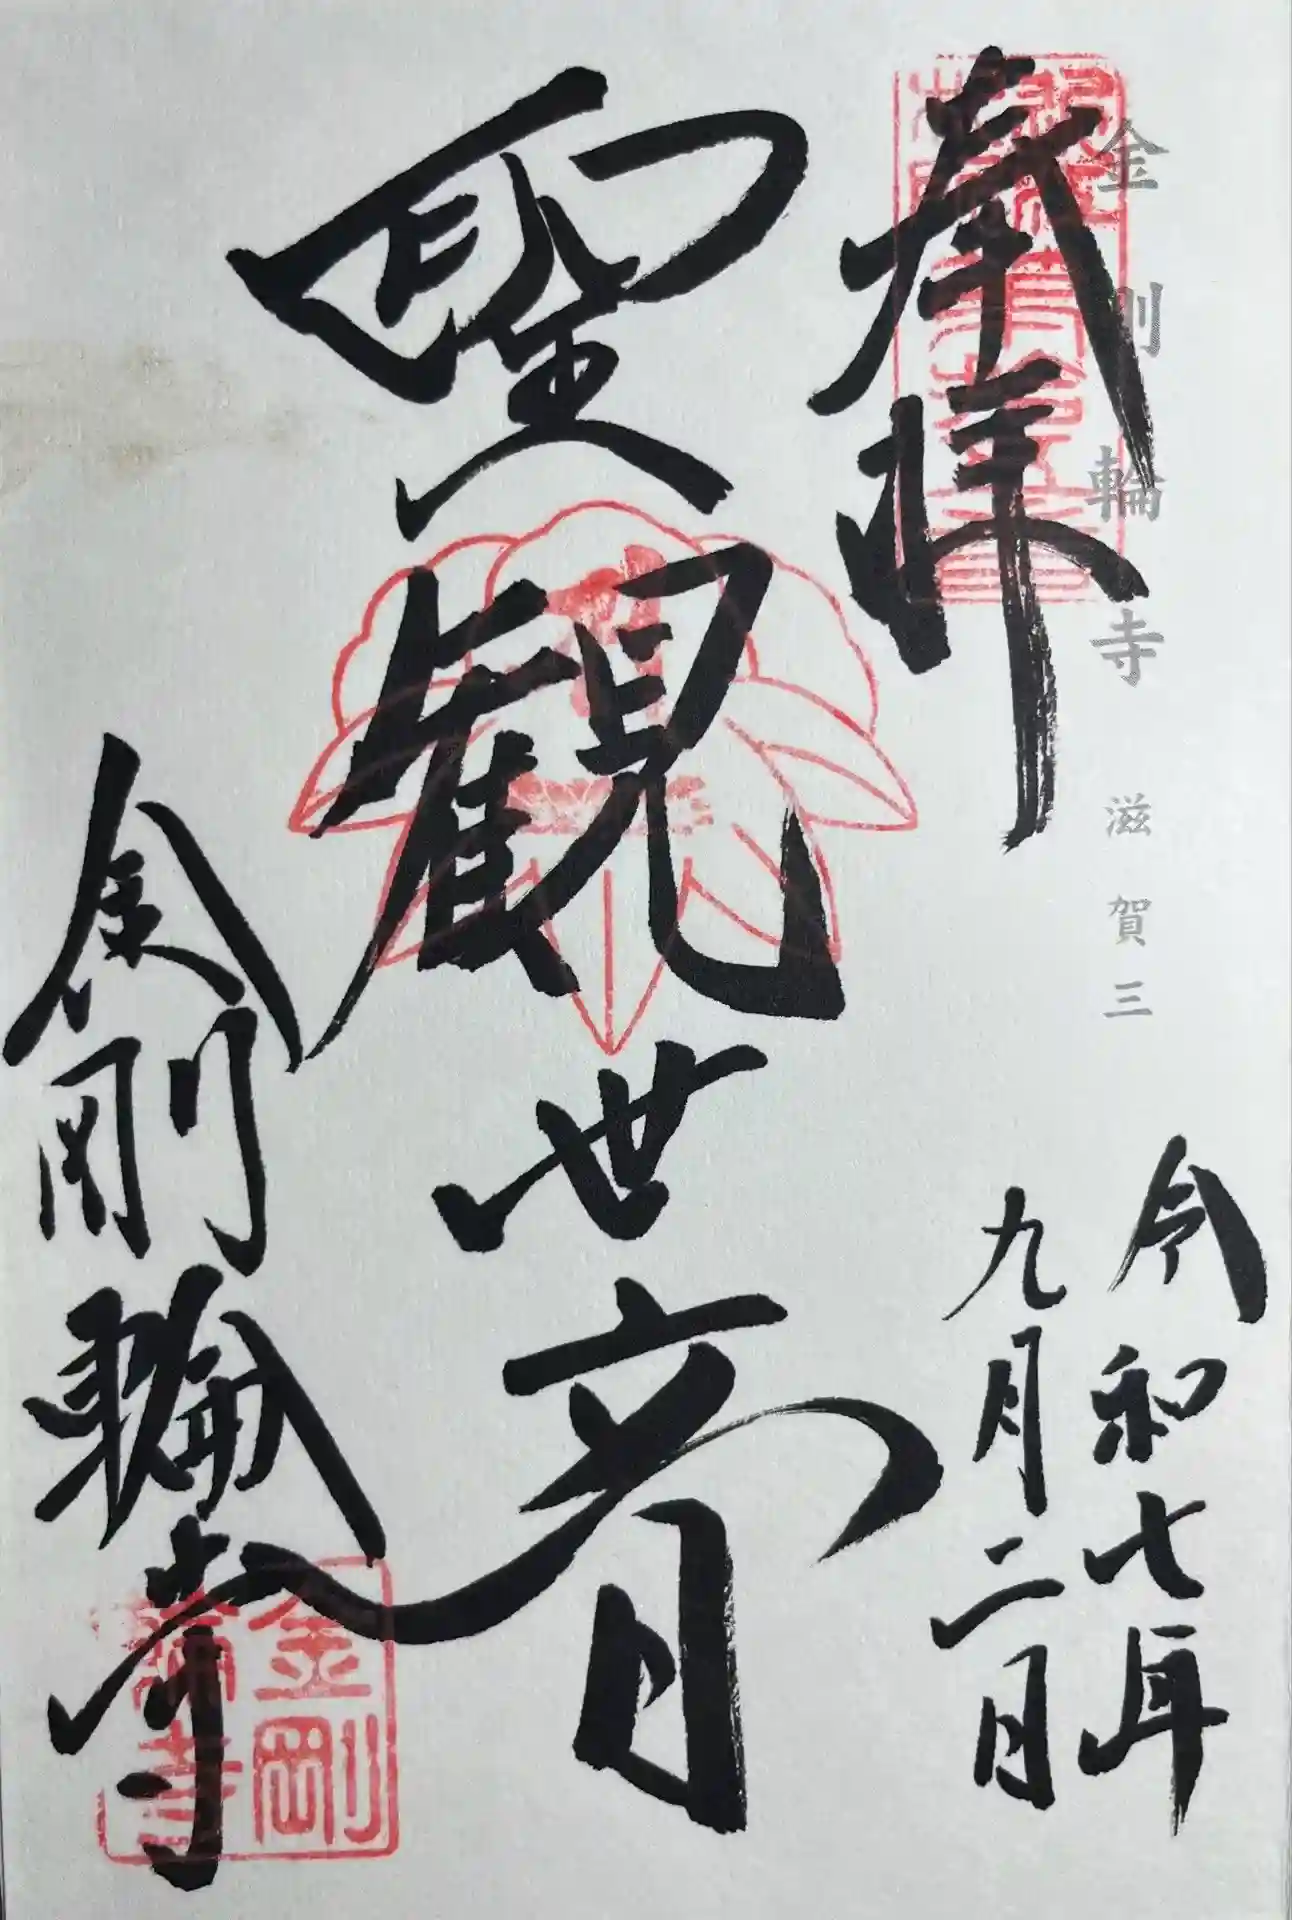 金剛輪寺 滋賀三
奉拝
令和七年
九月二日
聖観世音
金剛輪寺
金剛
輪寺